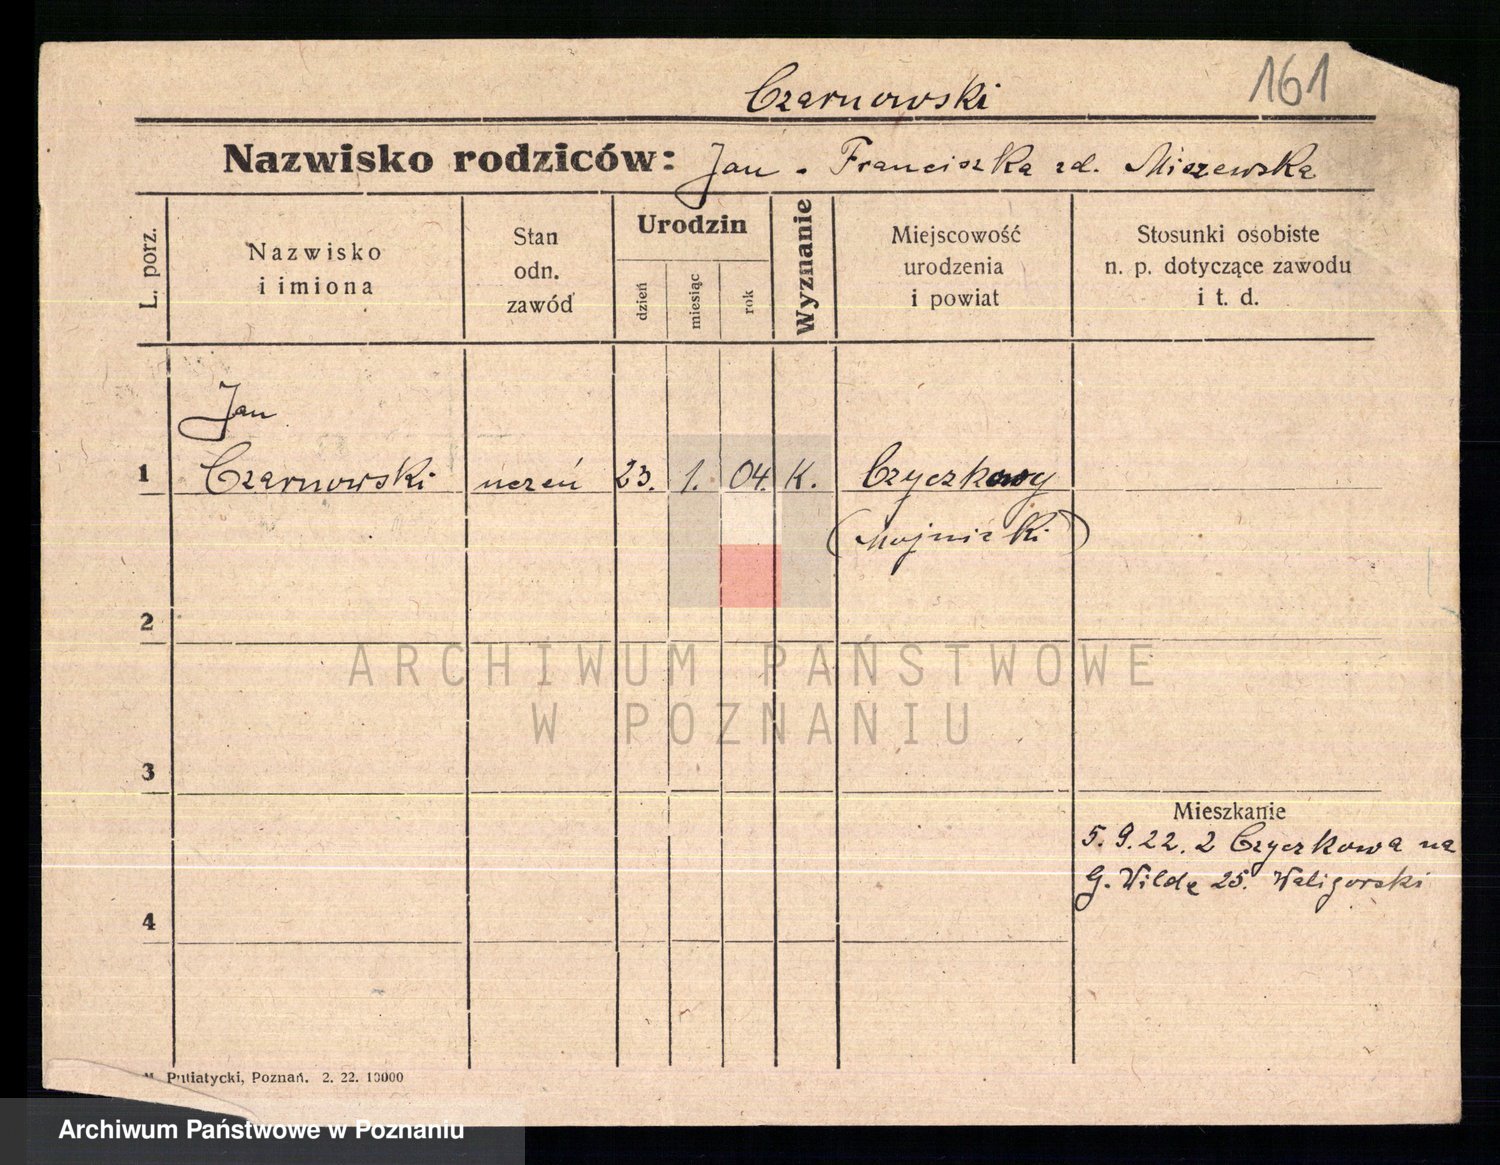 161
Czarnowski
Nazwisko rodziców: Jan - Franciszka zd. Miszewska
L. porz.
Nazwisko
i imiona
Stan
odn.
zawód
Urodzin
dzień
miesiąc
rok
Wyznanie
Miejscowość
urodzenia
i powiat
Stosunki osobiste
n. p. dotyczące zawodu
i t. d.
Jan
1 Czarnowski uczeń 23. 1. 04. K. Czyczkowy
2
3
Mieszkanie
5.9.22. z Czyczkowa na
G. Wildę 25. Waligorski
4
Putiatycki, Poznań. 2. 22. 10000
ARCHIWUM PAŃSTWOWE
W POZNANIU
Archiwum Państwowe w Poznaniu